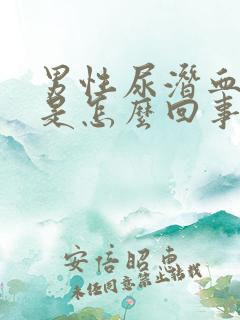 男性尿潛血
是怎麼回事
安倍昭惠
未经同意禁止转载